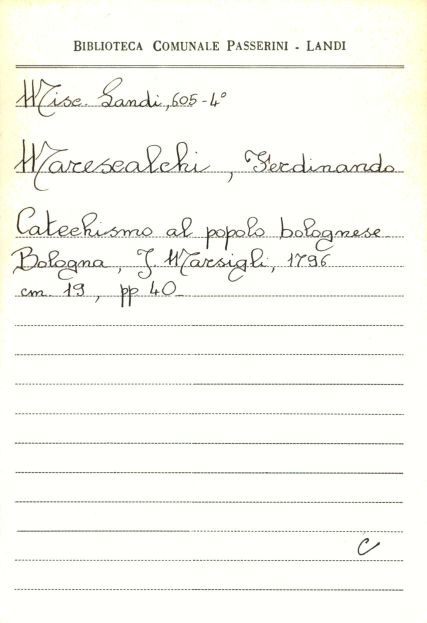 BIBLIOTECA COMUNALE PASSERINI - LANDI
Misc. Landi, 605-4°
Marescalchi, Ferdinando
Catechismo al popolo bolognese
Bologna, J. Marsigli, 1796
cm. 19, pp 40
C